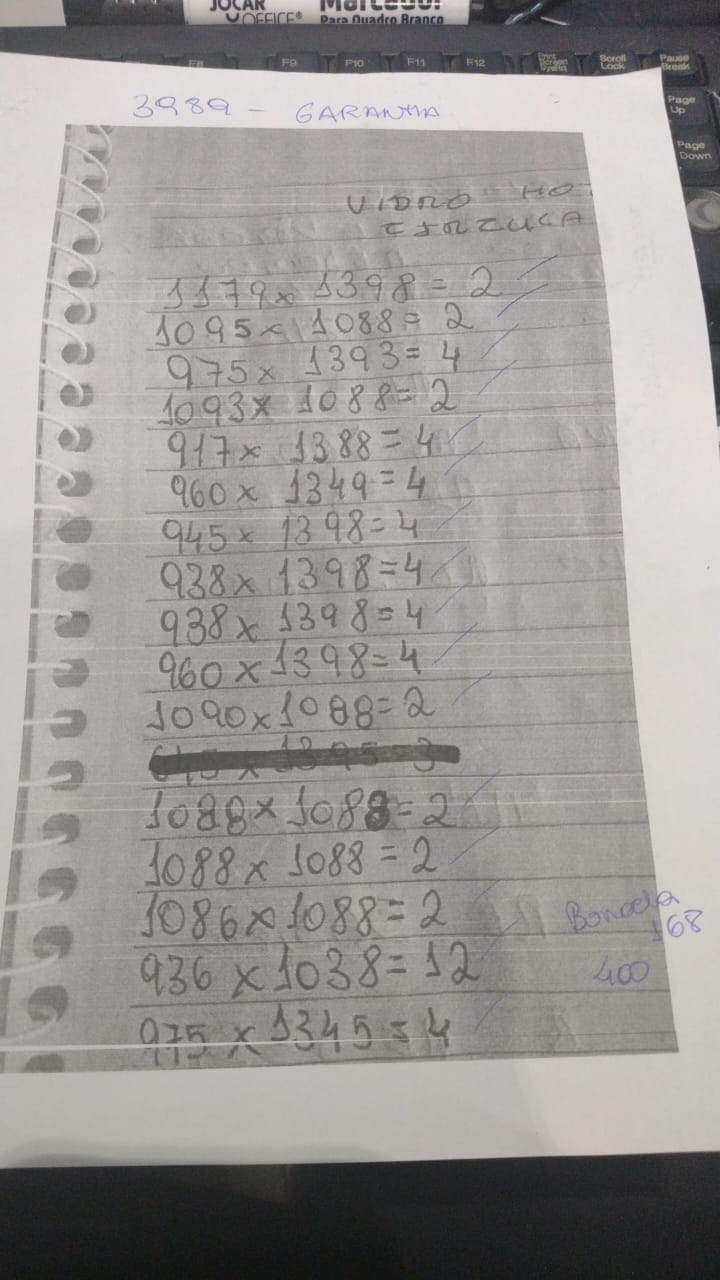 JOCAR
OFFICE®
Marcador
Para Quadro Branco
F8 F9 F10 F11 F12 Print Screen SysRq Scroll Lock Pause Break
Page Up
Page Down
3989 - GARANTIA
VIDRO
1179 x 1398 = 2
1095 x 1088 = 2
975 x 1393 = 4
1093 x 1088 = 2
917 x 1388 = 4
960 x 1349 = 4
945 x 1398 = 4
938 x 1398 = 4
938 x 1398 = 4
960 x 1398 = 4
1090 x 1088 = 2
645 x 1395 = 3
1088 x 1088 = 2
1088 x 1088 = 2
1086 x 1088 = 2
936 x 1038 = 12
975 x 1345 = 4
168
400